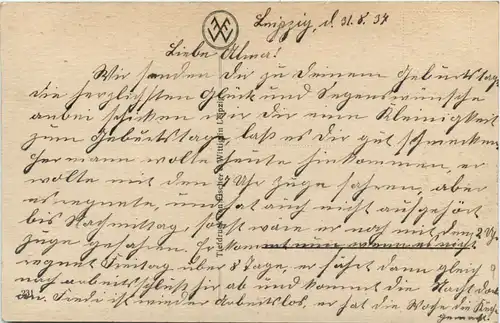 Leipzig, d. 31.8.37
Liebe Alma!
Wir senden Dir zu Deinem Geburtstag
die herzlichsten Glück und Segenswünsche
anbei schicken wir Dir eine Kleinigkeit
zum Geburtstage, laß es Dir gut schmecken
Hermann wollte heute hinkommen, er
wollte mit den 7 Uhr Zuge fahren, aber
es regnete, und hat auch nicht aufgehört
bis Nachmittag, sonst wäre er noch mit dem 2 U.
Zuge gefahren. Er kommt nun wenn es nicht
regnet Freitag über 8 Tage, er fährt dann gleich
nach arbeitschluß hir ab und kommt die Nacht dort
an. Fredi ist wieder Arbeitslos, er hat die Woche die
gemacht.
Tiefdruck von Fischer & Wittig in Leipzig
231